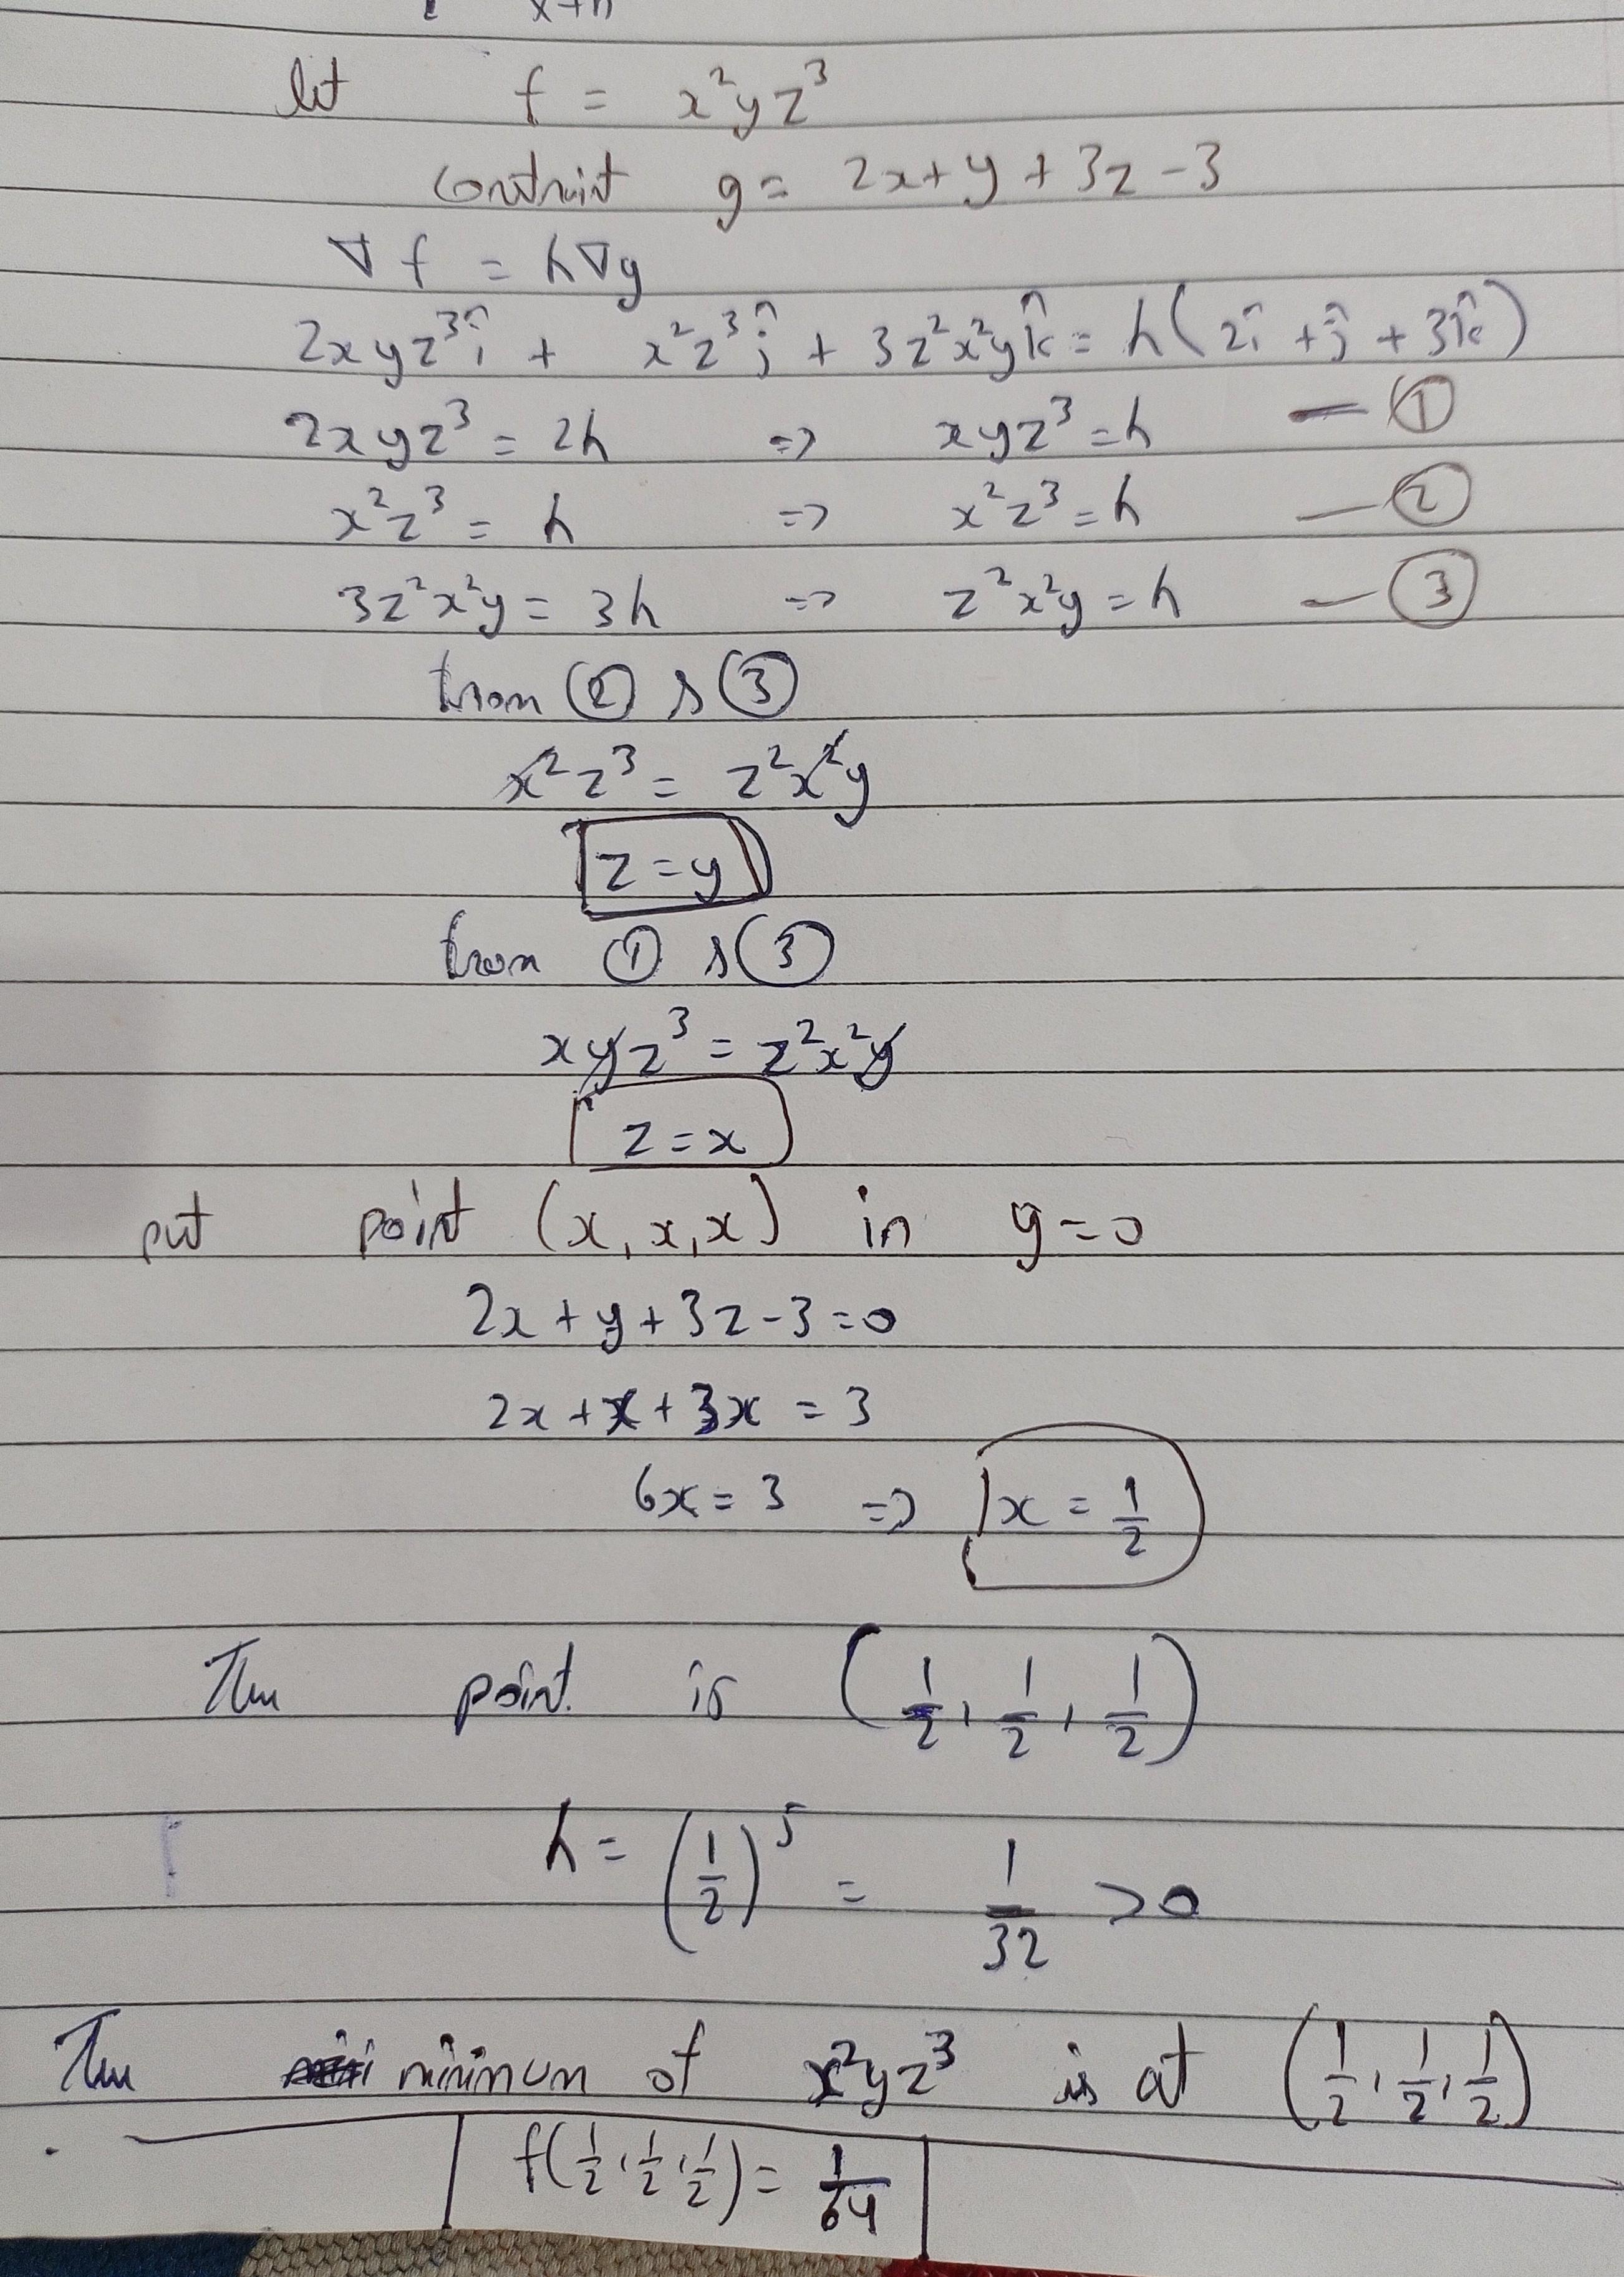 x+h
let f = x²yz³
g = 2x + y + 3z - 3
∇f = h∇g
2xyz³î + x²z³ĵ + 3z²x²yk̂ = h(2î + ĵ + 3k̂)
2xyz³ = 2h => xyz³ = h — ①
x²z³ = h => x²z³ = h — ②
3z²x²y = 3h => z²x²y = h — ③
from ② & ③
x²z³ = z²x²y
z = y
from ① & ③
xyz³ = z²x²y
z = x
put point (x, x, x) in g = 0
2x + y + 3z - 3 = 0
2x + x + 3x = 3
6x = 3 => x = 1/2
The point is (1/2, 1/2, 1/2)
h = (1/2)⁵ = 1/32 > 0
The minimum of x²yz³ is at (1/2, 1/2, 1/2)
f(1/2, 1/2, 1/2) = 1/64